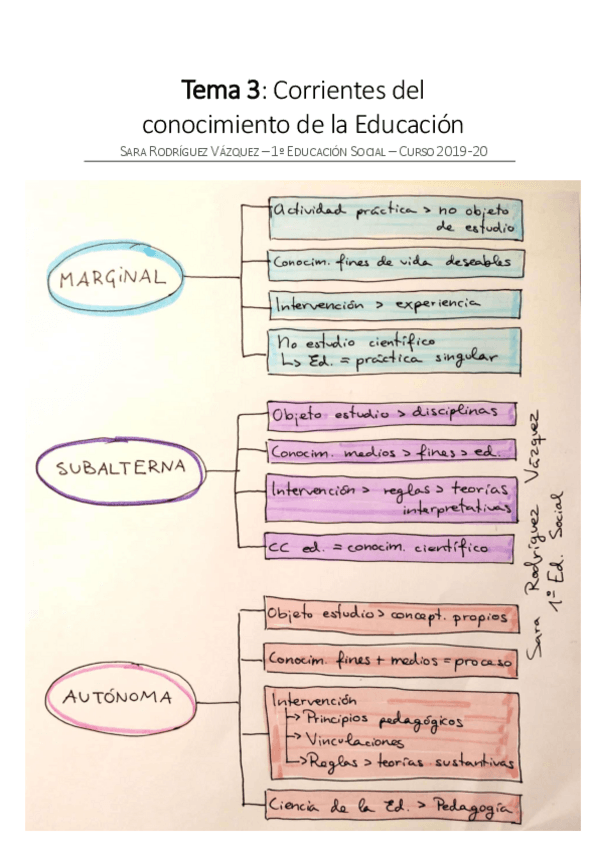 Tema 3: Corrientes del
conocimiento de la Educación
SARA RODRÍGUEZ VÁZQUEZ – 1º EDUCACIÓN SOCIAL – CURSO 2019-20
MARGINAL
Actividad práctica > no objeto
de estudio
Conocim. fines de vida deseables
Intervención > experiencia
No estudio científico
↳ Ed. = práctica singular
SUBALTERNA
Objeto estudio > disciplinas
Conocim. medios > fines > ed.
Intervención > reglas > teorías
interpretativas
CC ed. = conocim. científico
AUTÓNOMA
Objeto estudio > concept. propios
Conocim. fines + medios = proceso
Intervención
→ Principios pedagógicos
→ Vinculaciones
→ Reglas > teorías sustantivas
Ciencia de la Ed. > Pedagogía
Sara Rodríguez Vázquez
1º Ed. Social